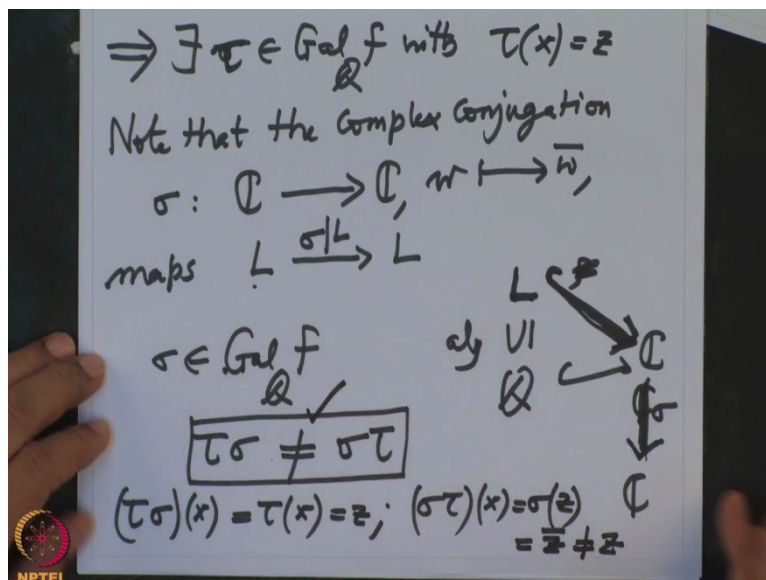 ⟹ ∃ τ ∈ Gal_ℚ f with τ(x) = z
Note that the Complex Conjugation
σ : ℂ ⟶ ℂ, w ⟼ w̅,
maps L —σ|L→ L
L
alg ∪| ℂ
ℚ
σ ∈ Gal_ℚ f
σ
τσ ≠ στ
(τσ)(x) = τ(x) = z; (στ)(x) = σ(z)
= z̅ ≠ z
ℂ
NPTEL